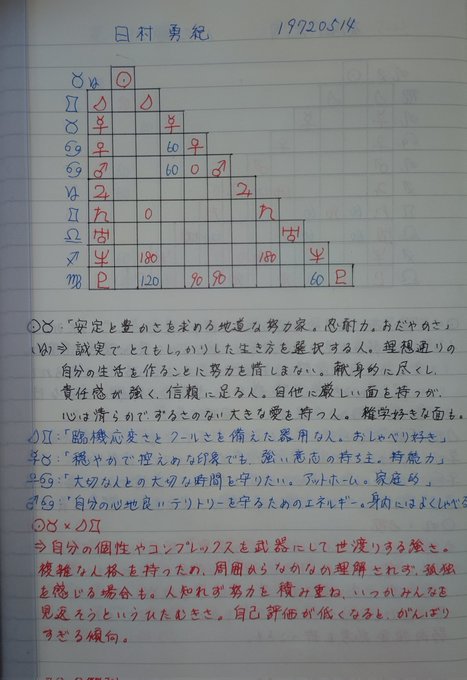 日村勇紀 19720514
♉ ♑ ☉
♊ ☽ ☽
♉ ☿ ☿
♋ ♀ 60 ♀
♋ ♂ 60 0 ♂
♑ ♃ ♃
♊ ♄ 0 ♄
♎ ♅ ♅
♐ ♆ 180 ♆
♍ ♇ 120 90 90 180 60 ♇
☉♉:「安定と豊かさを求める地道な努力家。忍耐力。おだやかさ」
(♑)⇒誠実でとてもしっかりした生き方を選択する人。理想通りの
自分の生活を作ることに努力を惜しまない。献身的に尽くし、
責任感が強く、信頼に足る人。自他に厳しい面を持つが、
心は清らかで、ずるさのない大きな愛を持つ人。雑学好きな面も。
☽♊:「臨機応変さとクールさを備えた器用な人。おしゃべり好き」
☿♉:「穏やかで控えめな印象でも、強い意志の持ち主。持能力」
♀♋:「大切な人との大切な時間を守りたい。アットホーム。家庭的」
♂♋:「自分の心地良いテリトリーを守るためのエネルギー。身内にはよくしゃべる
☉♉×☽♊
⇒自分の個性やコンプレックスを武器にして世渡りする強さ。
複雑な人格を持つため、周囲からなかなか理解されず、孤独
を感じる場合も。人知れず努力を積み重ね、いつかみんなを
見返そうというひたむきさ。自己評価が低くなると、がんばり
すぎる傾向。